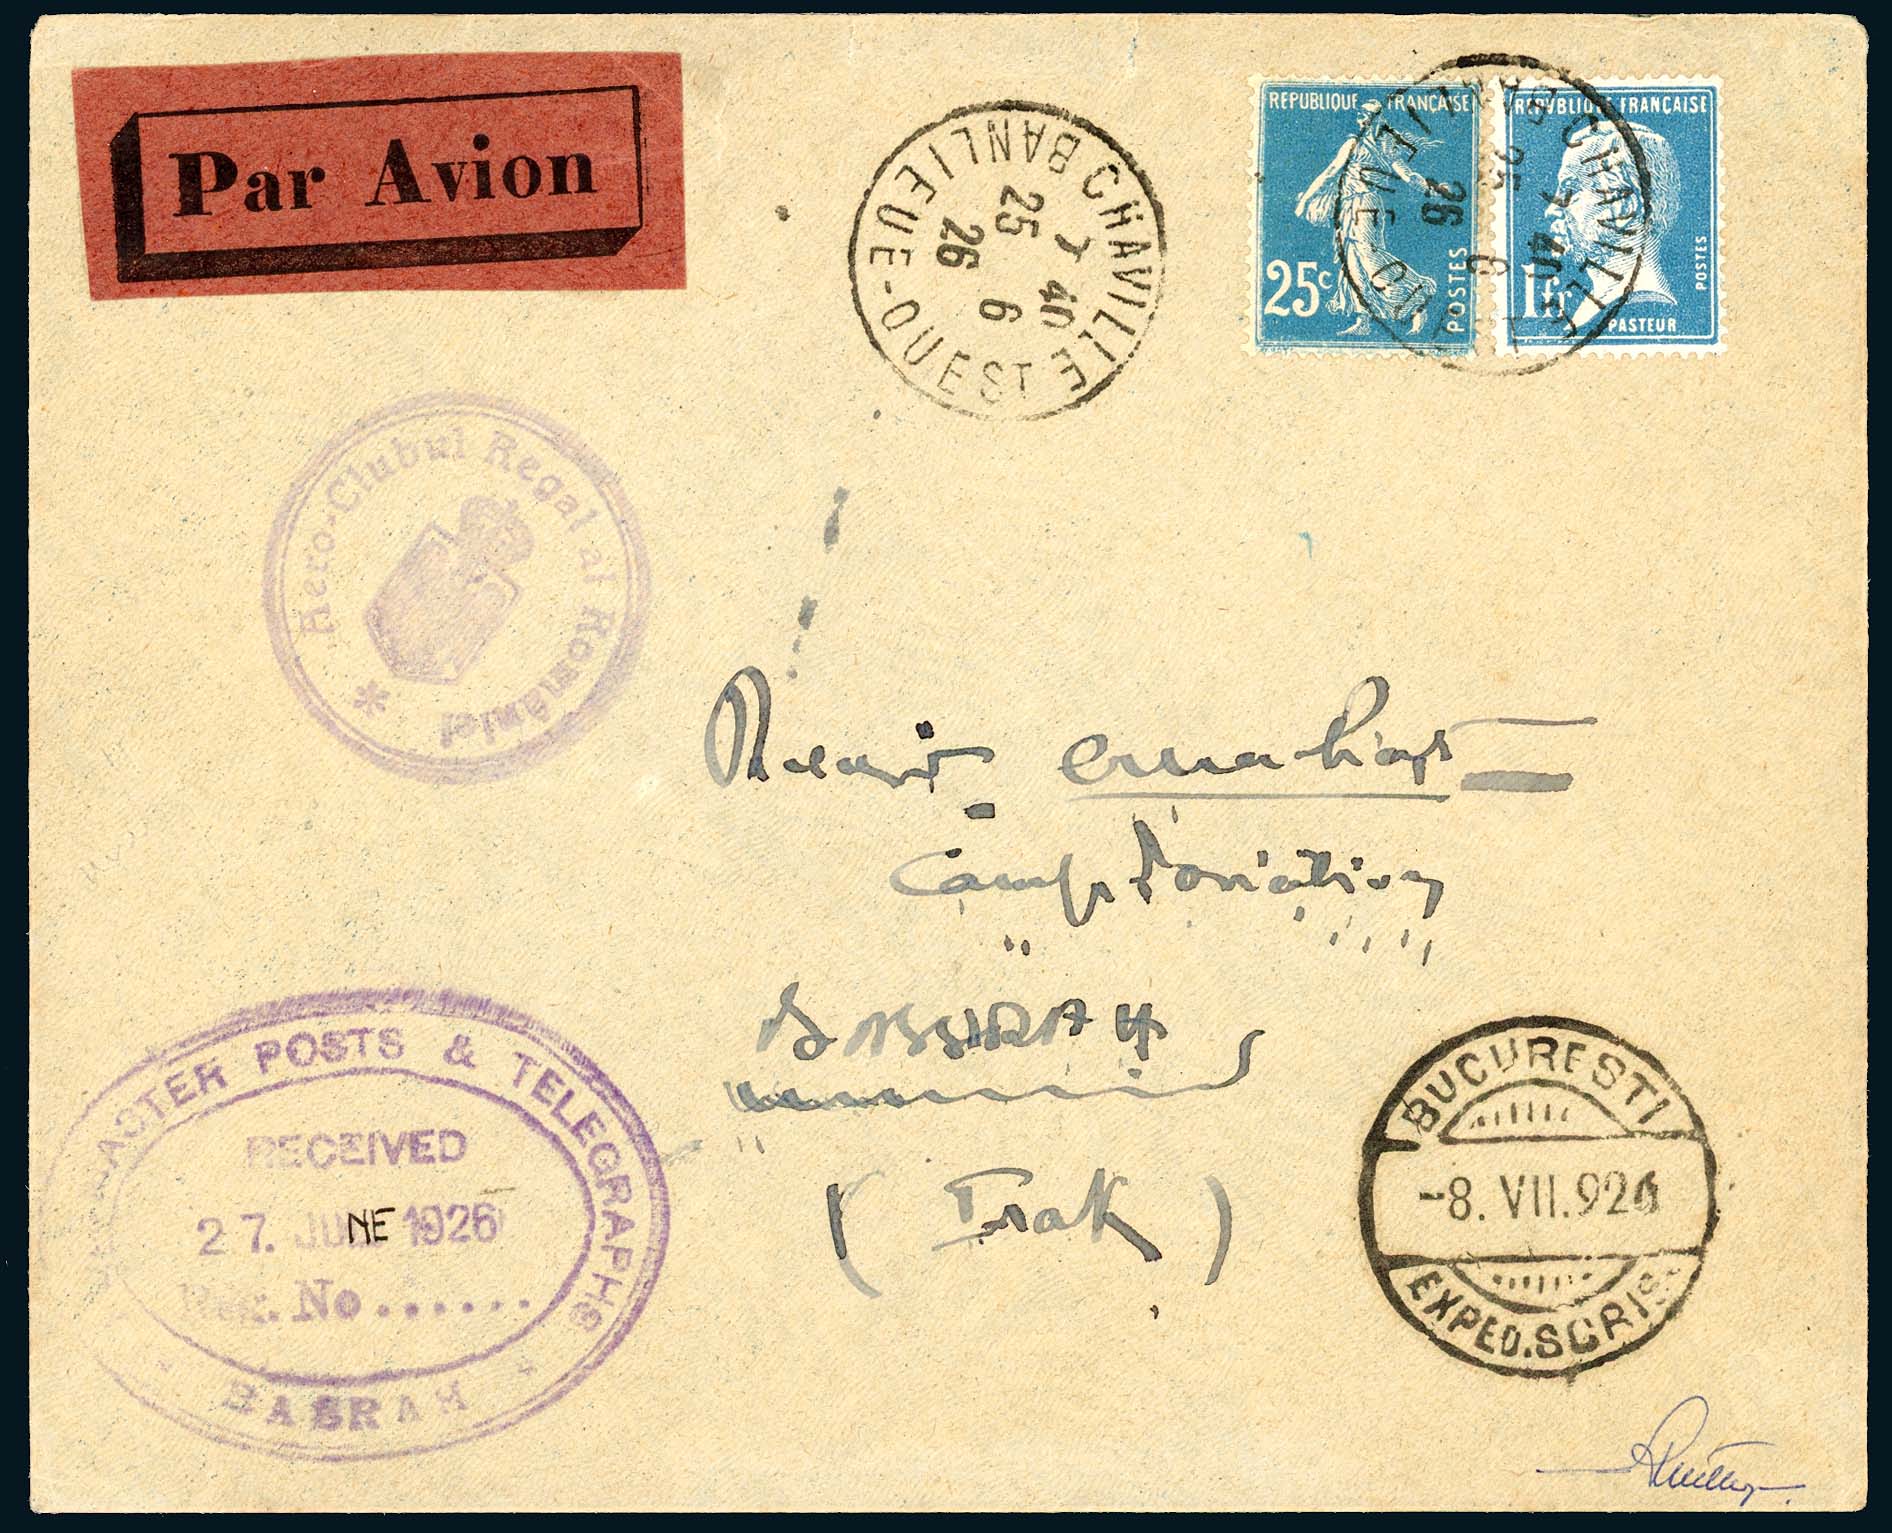 Par Avion
CHAVILLE
BANLIEUE-OUEST
7 40
25 6
26
REPUBLIQUE FRANÇAISE
25c
POSTES
REPVBLIQVE FRANÇAISE
1fr
POSTES
PASTEUR
CHAVILLE
7 40
25 6
26
Aero-Clubul Regal al României
*
Camp d'aviation
BASSRAH
(Irak)
POSTS & TELEGRAPHS
RECEIVED
27. JUNE 1926
Reg. No ......
BASRAH
BUCURESTI
-8. VII. 926
EXPED. SCRIS.